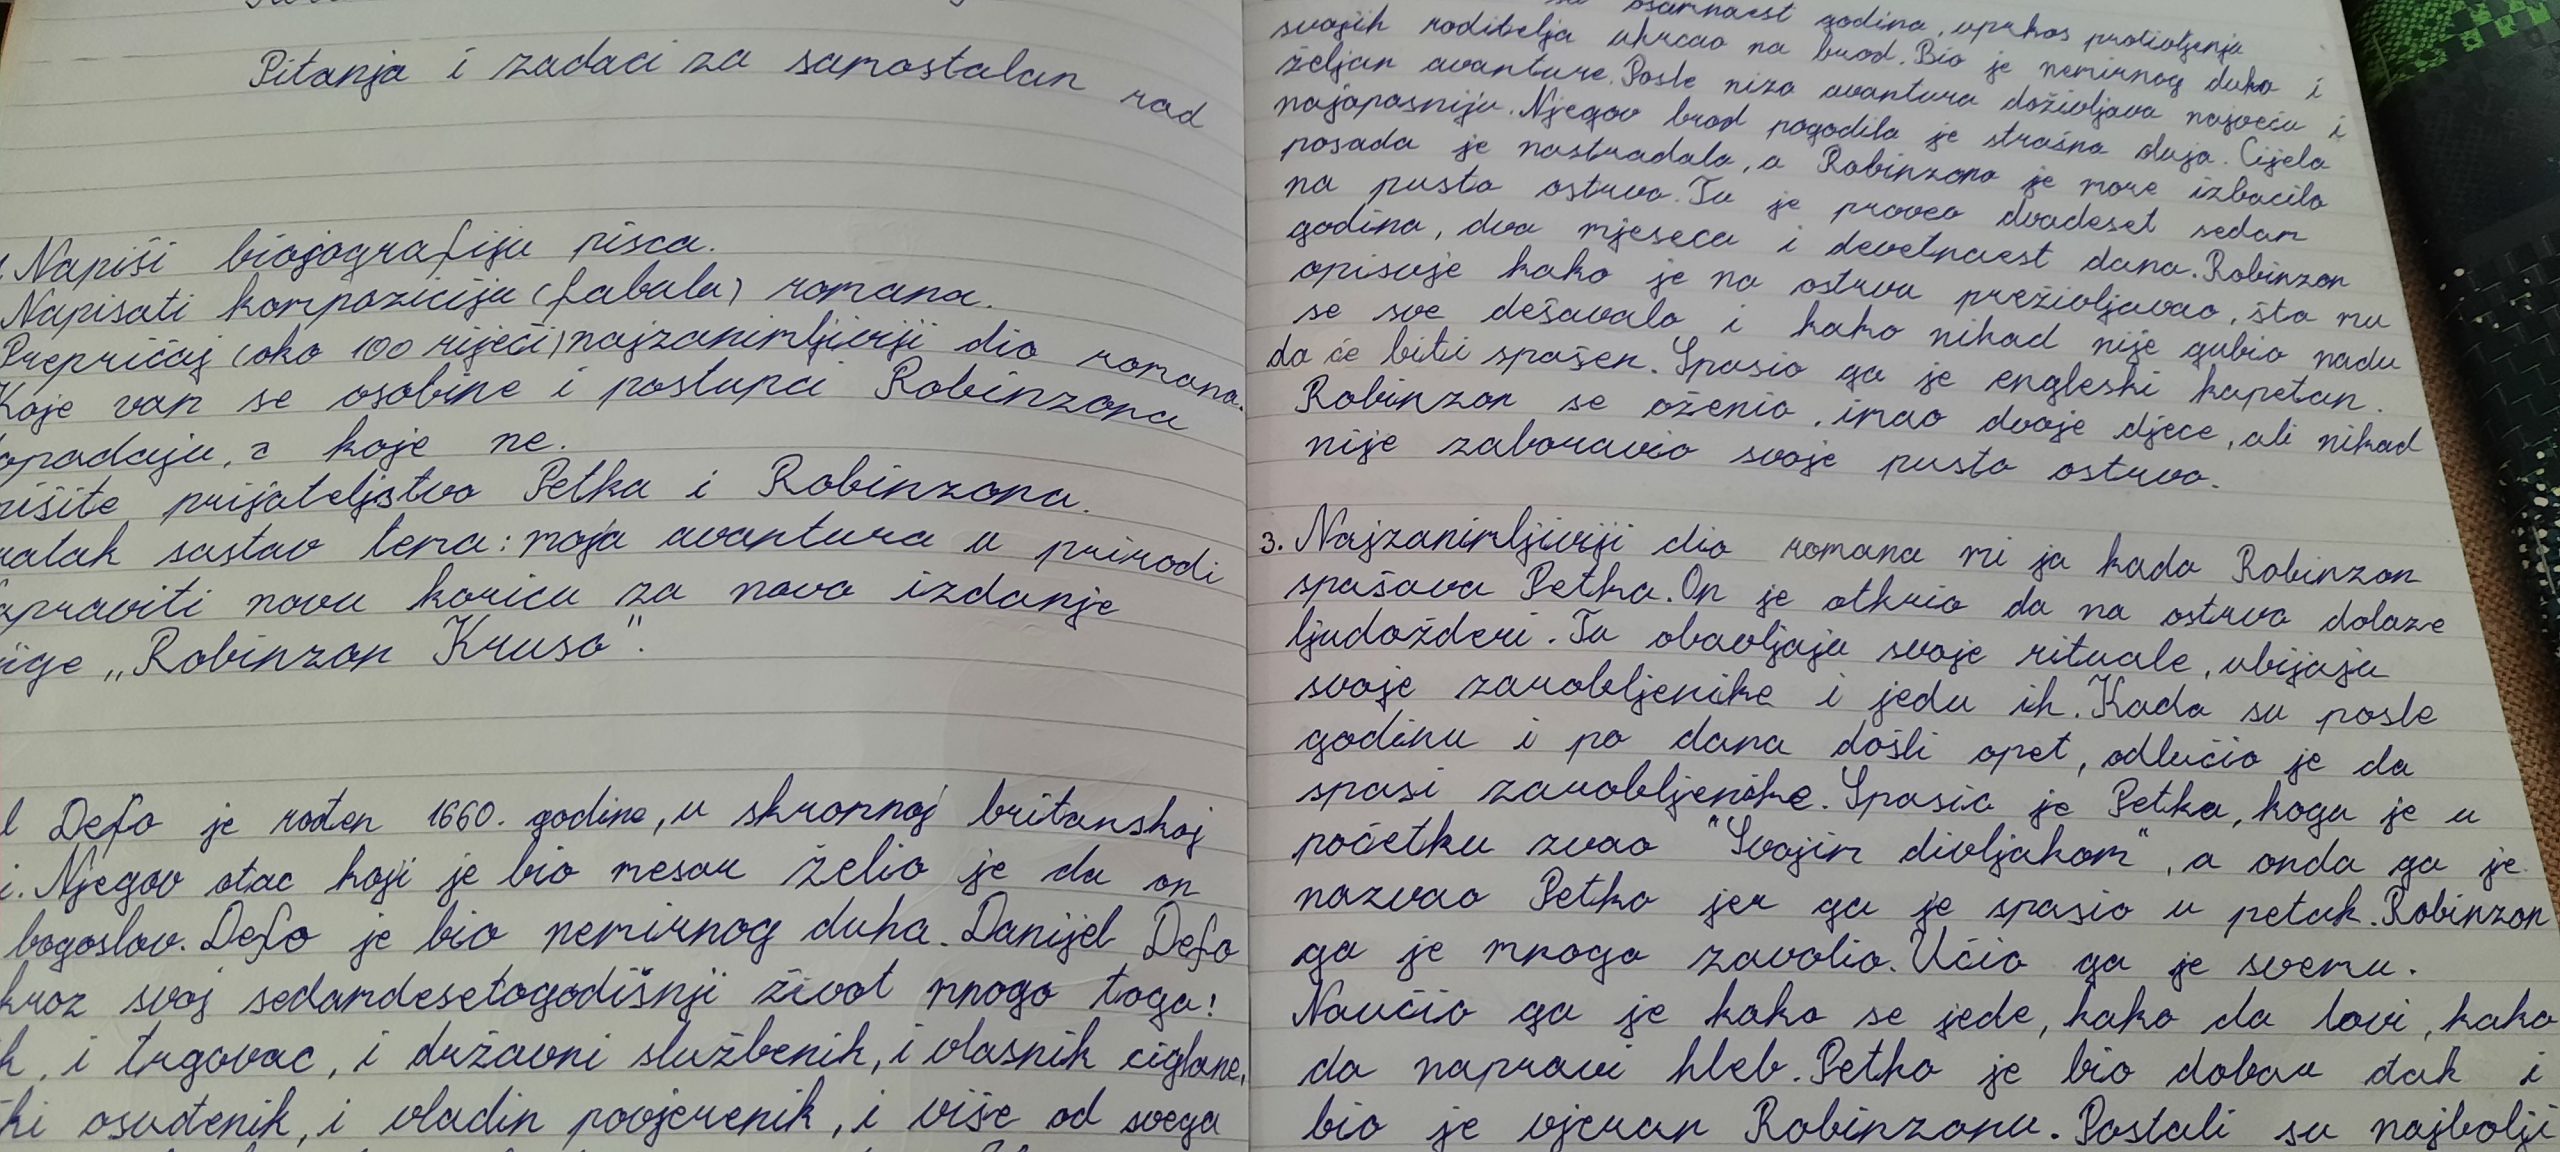 Pitanja i zadaci za samostalan rad
Napiši biojografiju pisca.
Napisati kompoziciju (fabula) romana.
Prepričaj (oko 100 riječi) najzanimljiviji dio romana.
Koje vam se osobine i postupci Robinzona
opadaju, a koje ne.
pišite prijateljstvo Petka i Robinzona.
ratak sastav tema: moja avantura u prirodi
apraviti novu koricu za novo izdanje
ige „Robinzon Kruso".
l Defo je rođen 1660. godine, u skromnoj britanskoj
i. Njegov otac koji je bio mesar želio je da on
bogoslov. Defo je bio nemirnog duha. Danijel Defo
kroz svoj sedamdesetogodišnji život mnogo toga!
k, i trgovac, i državni službenik, i vlasnik ciglane,
ki osuđenik, i vladin povjerenik, i više od svega
osamnaest godina, uprkos protivljenju
svojih roditelja ukrcao na brod. Bio je nemirnog duha i
željan avanture. Posle niza avantura doživljava najveću i
najopasniju. Njegov brod pogodila je strašna oluja. Cijela
posada je nastradala, a Robinzona je more izbacilo
na pusto ostrvo. Tu je proveo dvadeset sedam
godina, dva mjeseca i devetnaest dana. Robinzon
opisuje kako je na ostrvu preživljavao, šta mu
se sve dešavalo i kako nikad nije gubio nadu
da će biti spašen. Spasio ga je engleski kapetan.
Robinzon se oženio, imao dvoje djece, ali nikad
nije zaboravio svoje pusto ostrvo.
3. Najzanimljiviji dio romana mi ja kada Robinzon
spašava Petka. On je otkrio da na ostrvo dolaze
ljudožderi. Tu obavljaju svoje rituale, ubijaju
svoje zarobljenike i jedu ih. Kada su posle
godinu i po dana došli opet, odlučio je da
spasi zarobljenike. Spasio je Petka, koga je u
početku zvao "Svojim divljakom", a onda ga je
nazvao Petko jer ga je spasio u petak. Robinzon
ga je mnogo zavolio. Učio ga je svemu.
Naučio ga je kako se jede, kako da lovi, kako
da napravi hleb. Petko je bio dobar đak i
bio je vjeran Robinzonu. Postali su najbolji